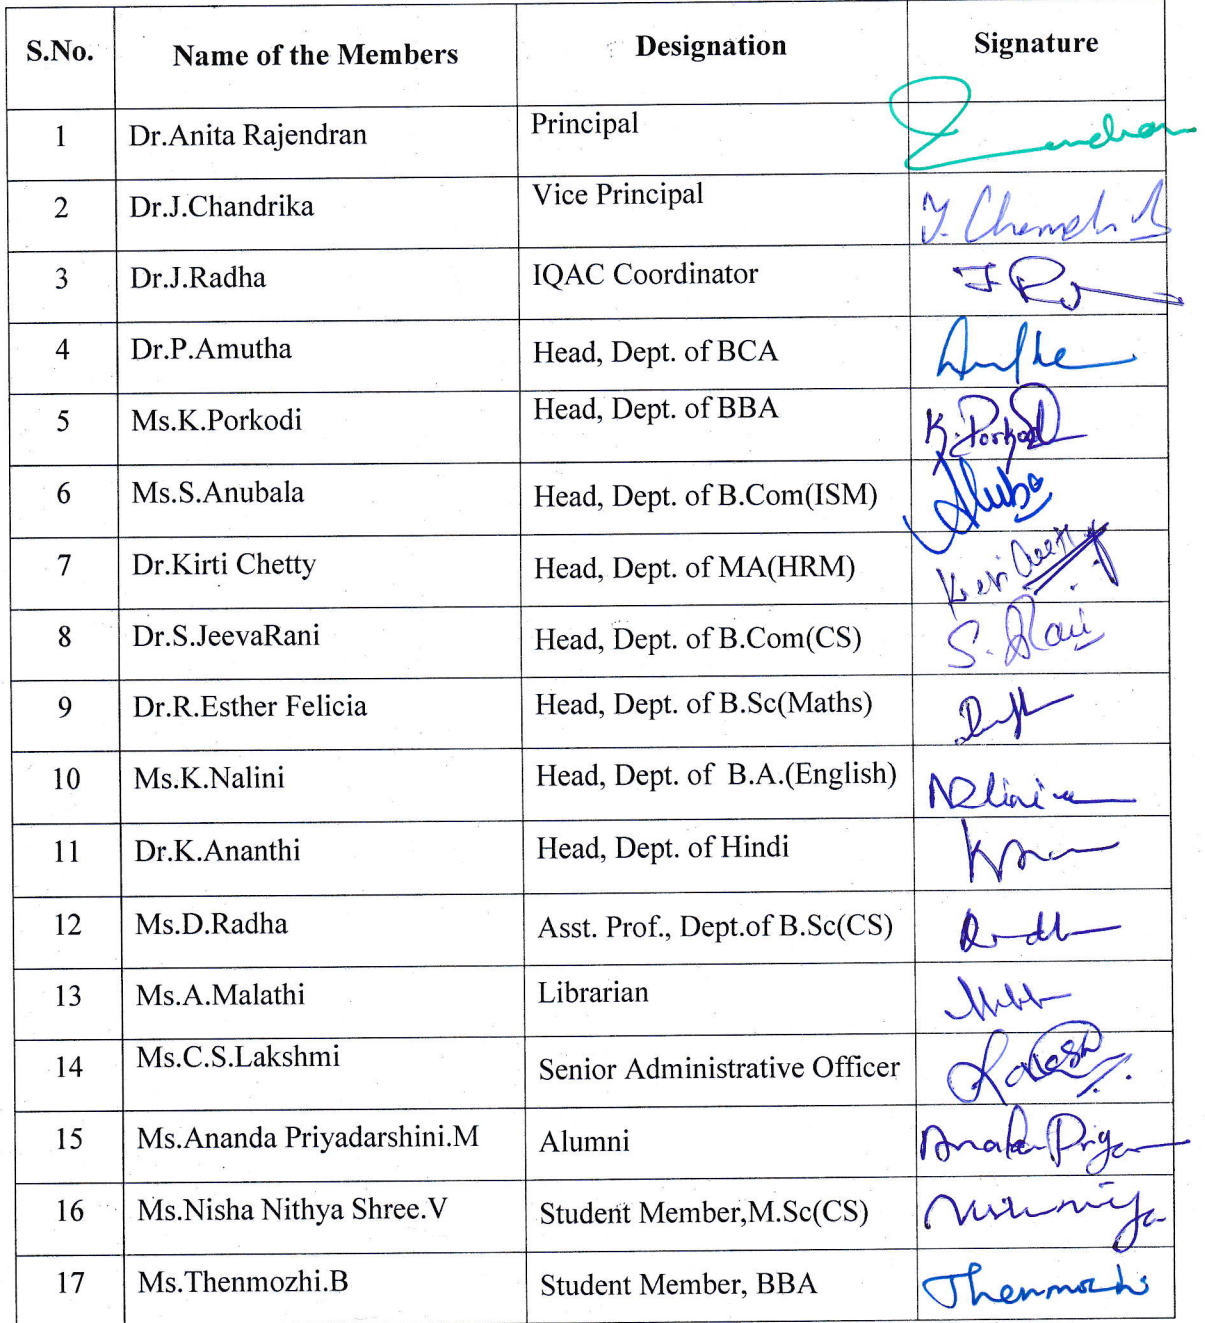 S.No. Name of the Members Designation Signature
1 Dr.Anita Rajendran Principal
2 Dr.J.Chandrika Vice Principal
3 Dr.J.Radha IQAC Coordinator
4 Dr.P.Amutha Head, Dept. of BCA
5 Ms.K.Porkodi Head, Dept. of BBA K.Porkodi
6 Ms.S.Anubala Head, Dept. of B.Com(ISM)
7 Dr.Kirti Chetty Head, Dept. of MA(HRM)
8 Dr.S.JeevaRani Head, Dept. of B.Com(CS)
9 Dr.R.Esther Felicia Head, Dept. of B.Sc(Maths)
10 Ms.K.Nalini Head, Dept. of B.A.(English)
11 Dr.K.Ananthi Head, Dept. of Hindi
12 Ms.D.Radha Asst. Prof., Dept.of B.Sc(CS)
13 Ms.A.Malathi Librarian
14 Ms.C.S.Lakshmi Senior Administrative Officer
15 Ms.Ananda Priyadarshini.M Alumni
16 Ms.Nisha Nithya Shree.V Student Member,M.Sc(CS)
17 Ms.Thenmozhi.B Student Member, BBA Thenmozhi